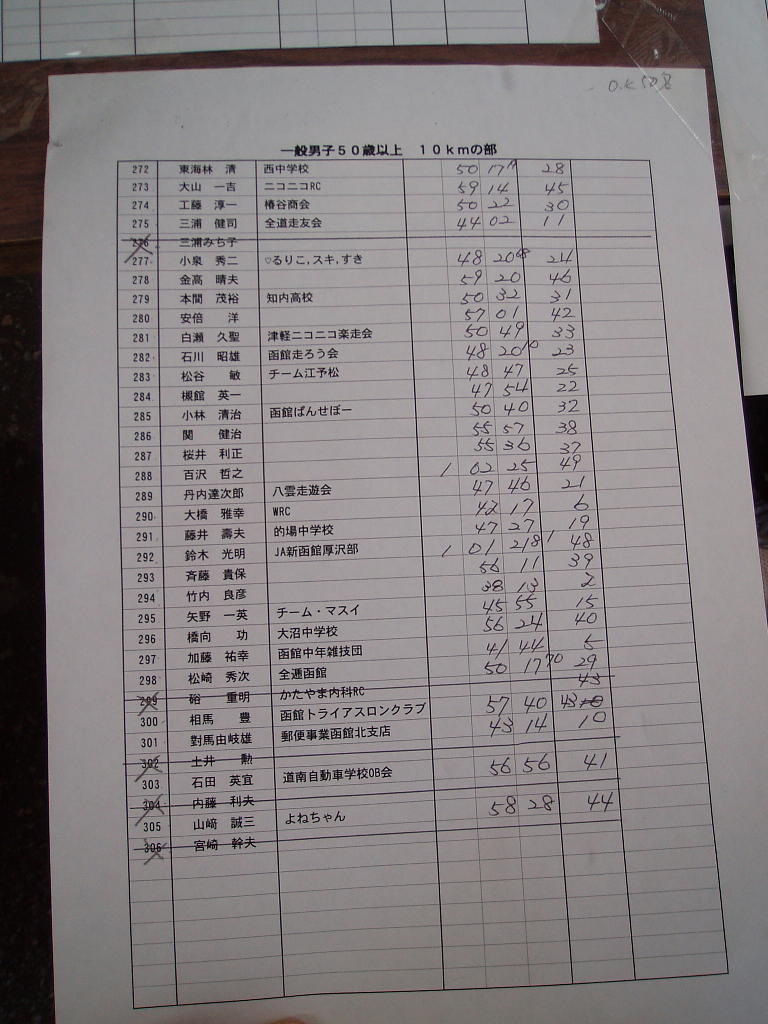 O.K 50名
一般男子50歳以上 10kmの部
272 東海林 清 西中学校 50 17 28
273 大山 一吉 ニコニコRC 59 14 45
274 工藤 淳一 椿谷商会 50 22 30
275 三浦 健司 全道走友会 44 02 11
276 三浦みち子
277 小泉 秀二 ♡るりこ,スキ,すき 48 20 24
278 金高 晴夫 59 20 46
279 本間 茂裕 知内高校 50 32 31
280 安倍 洋 57 01 42
281 白瀬 久聖 津軽ニコニコ楽走会 50 49 33
282 石川 昭雄 函館走ろう会 48 20 23
283 松谷 敏 チーム江予松 48 47 25
284 槻館 英一 47 54 22
285 小林 清治 函館ぱんせぼー 50 40 32
286 関 健治 55 57 38
287 桜井 利正 55 36 37
288 百沢 哲之 1 02 25 49
289 丹内達次郎 八雲走遊会 47 46 21
290 大橋 雅幸 WRC 42 17 6
291 藤井 壽夫 的場中学校 47 27 19
292 鈴木 光明 JA新函館厚沢部 1 01 48
293 斉藤 貴保 56 11 39
294 竹内 良彦 38 13 2
295 矢野 一英 チーム・マスイ 45 55 15
296 橋向 功 大沼中学校 56 24 40
297 加藤 祐幸 函館中年雑技団 41 44 5
298 松崎 秀次 全逓函館 50 17 29
299 硲 重明 かたやま内科RC 43
300 相馬 豊 函館トライアスロンクラブ 57 40 43
301 對馬由岐雄 郵便事業函館北支店 43 14 10
302 土井 勲
303 石田 英宜 道南自動車学校OB会 56 56 41
304 内藤 利夫
305 山﨑 誠三 よねちゃん 58 28 44
306 宮崎 幹夫